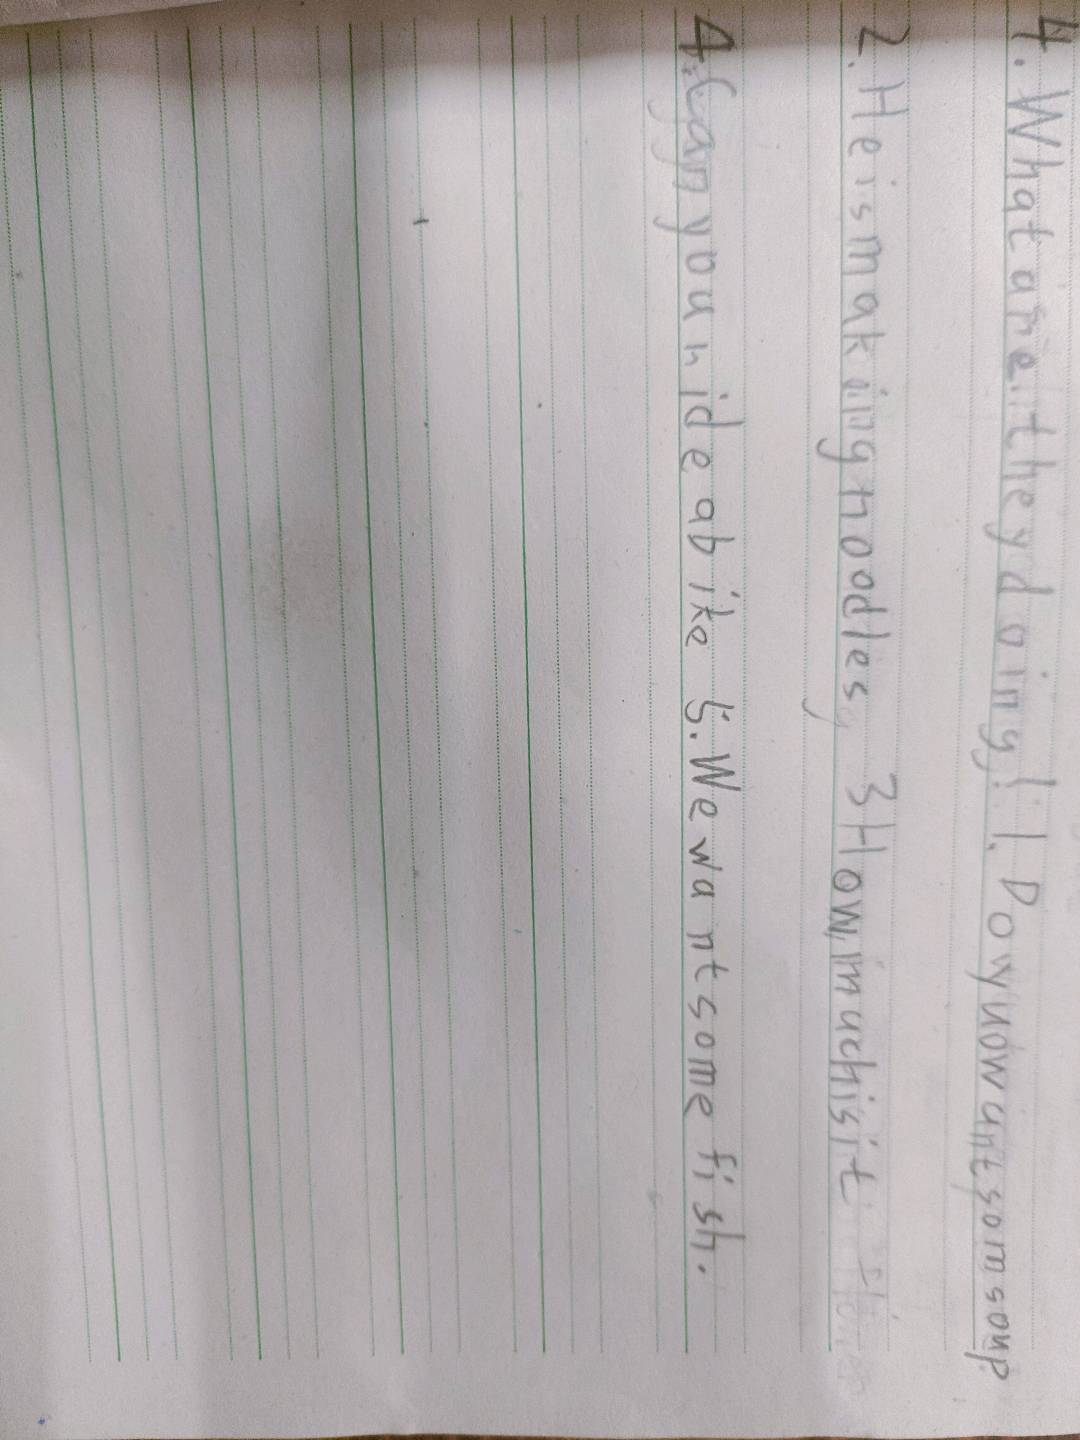 4. What are they doing! 1. Do yuow unt som soup
2. He is making noodles, 3 How much is it
4. Can you ride a bike 5. We want some fish.